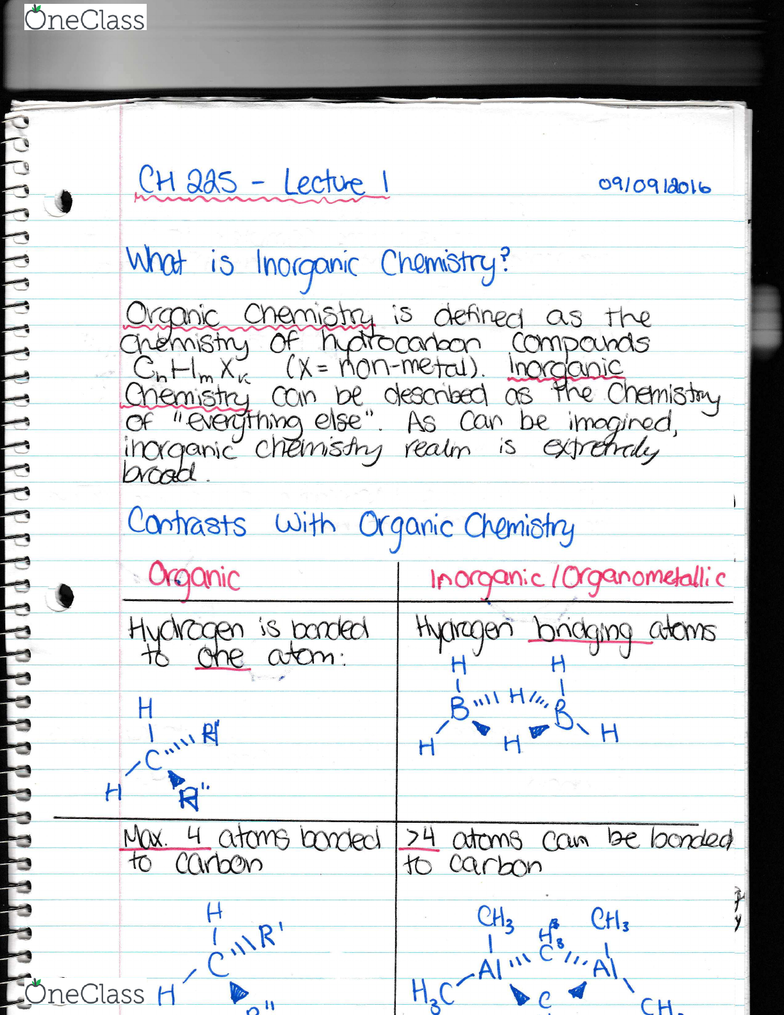 OneClass
CH 225 - Lecture 1
09/09/2016
What is Inorganic Chemistry?
Organic Chemistry is defined as the
chemistry of hydrocarbon compounds
CnHmXk (X = non-metal). Inorganic
Chemistry can be described as the Chemistry
of "everything else". As can be imagined,
inorganic chemistry realm is extremely
broad.
Contrasts with Organic Chemistry
Organic
Inorganic/Organometallic
Hydrogen is bonded
to one atom:
Hydrogen bridging atoms
H
H
B
H
B
H
H
H
H
C
R'
H
R"
Max. 4 atoms bonded
to carbon
>4 atoms can be bonded
to carbon
H
C
R'
H
R"
CH3
CH3
H3
C
Al
Al
H3C
C
CH3
OneClass